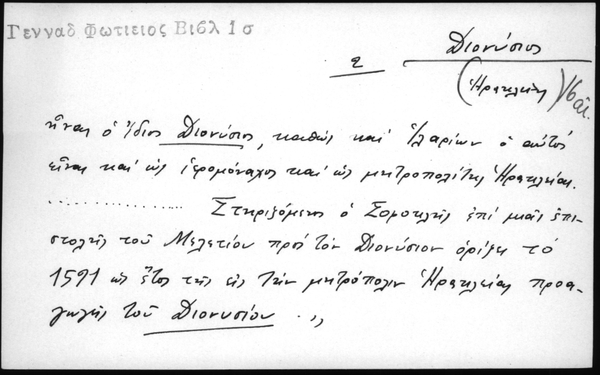 Γενναδ Φωτιειος Βιβλ 1 σ
2 Διονύσιος
(Ἡρακλείας) 16 αἰ.
εἶναι ὁ ἴδιος Διονύσιος, καθὼς καὶ Ἱλαρίων ὁ αὐτός
εἶναι καὶ ὡς ἱερομόναχος καὶ ὡς μητροπολίτης Ἡρακλείας.
............... Στηριζόμενος ὁ Σοφοκλῆς ἐπὶ μιᾶς ἐπι-
στολῆς τοῦ Μελετίου πρὸς τὸν Διονύσιον ὁρίζει τὸ
1591 ὡς ἔτος τῆς εἰς τὴν μητρόπολιν Ἡρακλείας προα-
γωγῆς τοῦ Διονυσίου . ,,